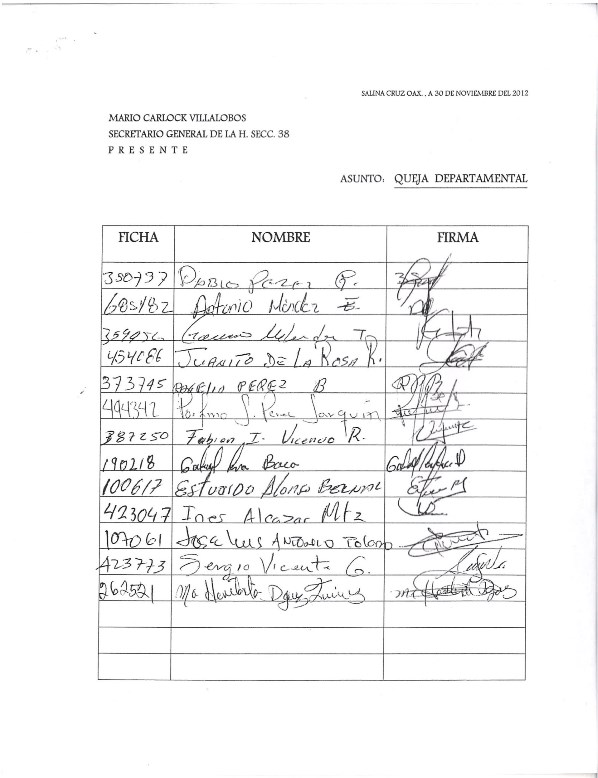 SALINA CRUZ OAX., A 30 DE NOVIEMBRE DEL 2012
MARIO CARLOCK VILLALOBOS
SECRETARIO GENERAL DE LA H. SECC. 38
P R E S E N T E
ASUNTO: QUEJA DEPARTAMENTAL
FICHA NOMBRE FIRMA
350737 Pablo P.
685182 Antonio Méndez E.
T.
454086 JUANITO DE LA ROSA R.
373745 ROGELIO PEREZ B
494342
387250 Fabian I. Vicencio R.
190218 Baca
100617 ESTURDO ALONSO BERNAL
423047 Ines Alcazar Mtz
107061 JOSE LUIS ANTONIO TOLEDO
423773 Sergio Vicente G.
262521 Ma Heriberto